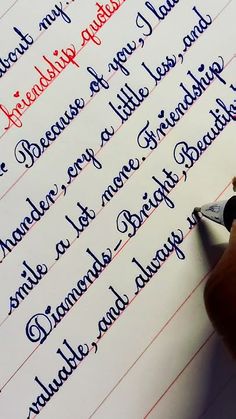 about my...
friendship quotes
Because of you, I lau
harder, cry a little less, and
smile a lot more. Friendship
Diamonds - Bright, Beautiful
valuable, and always